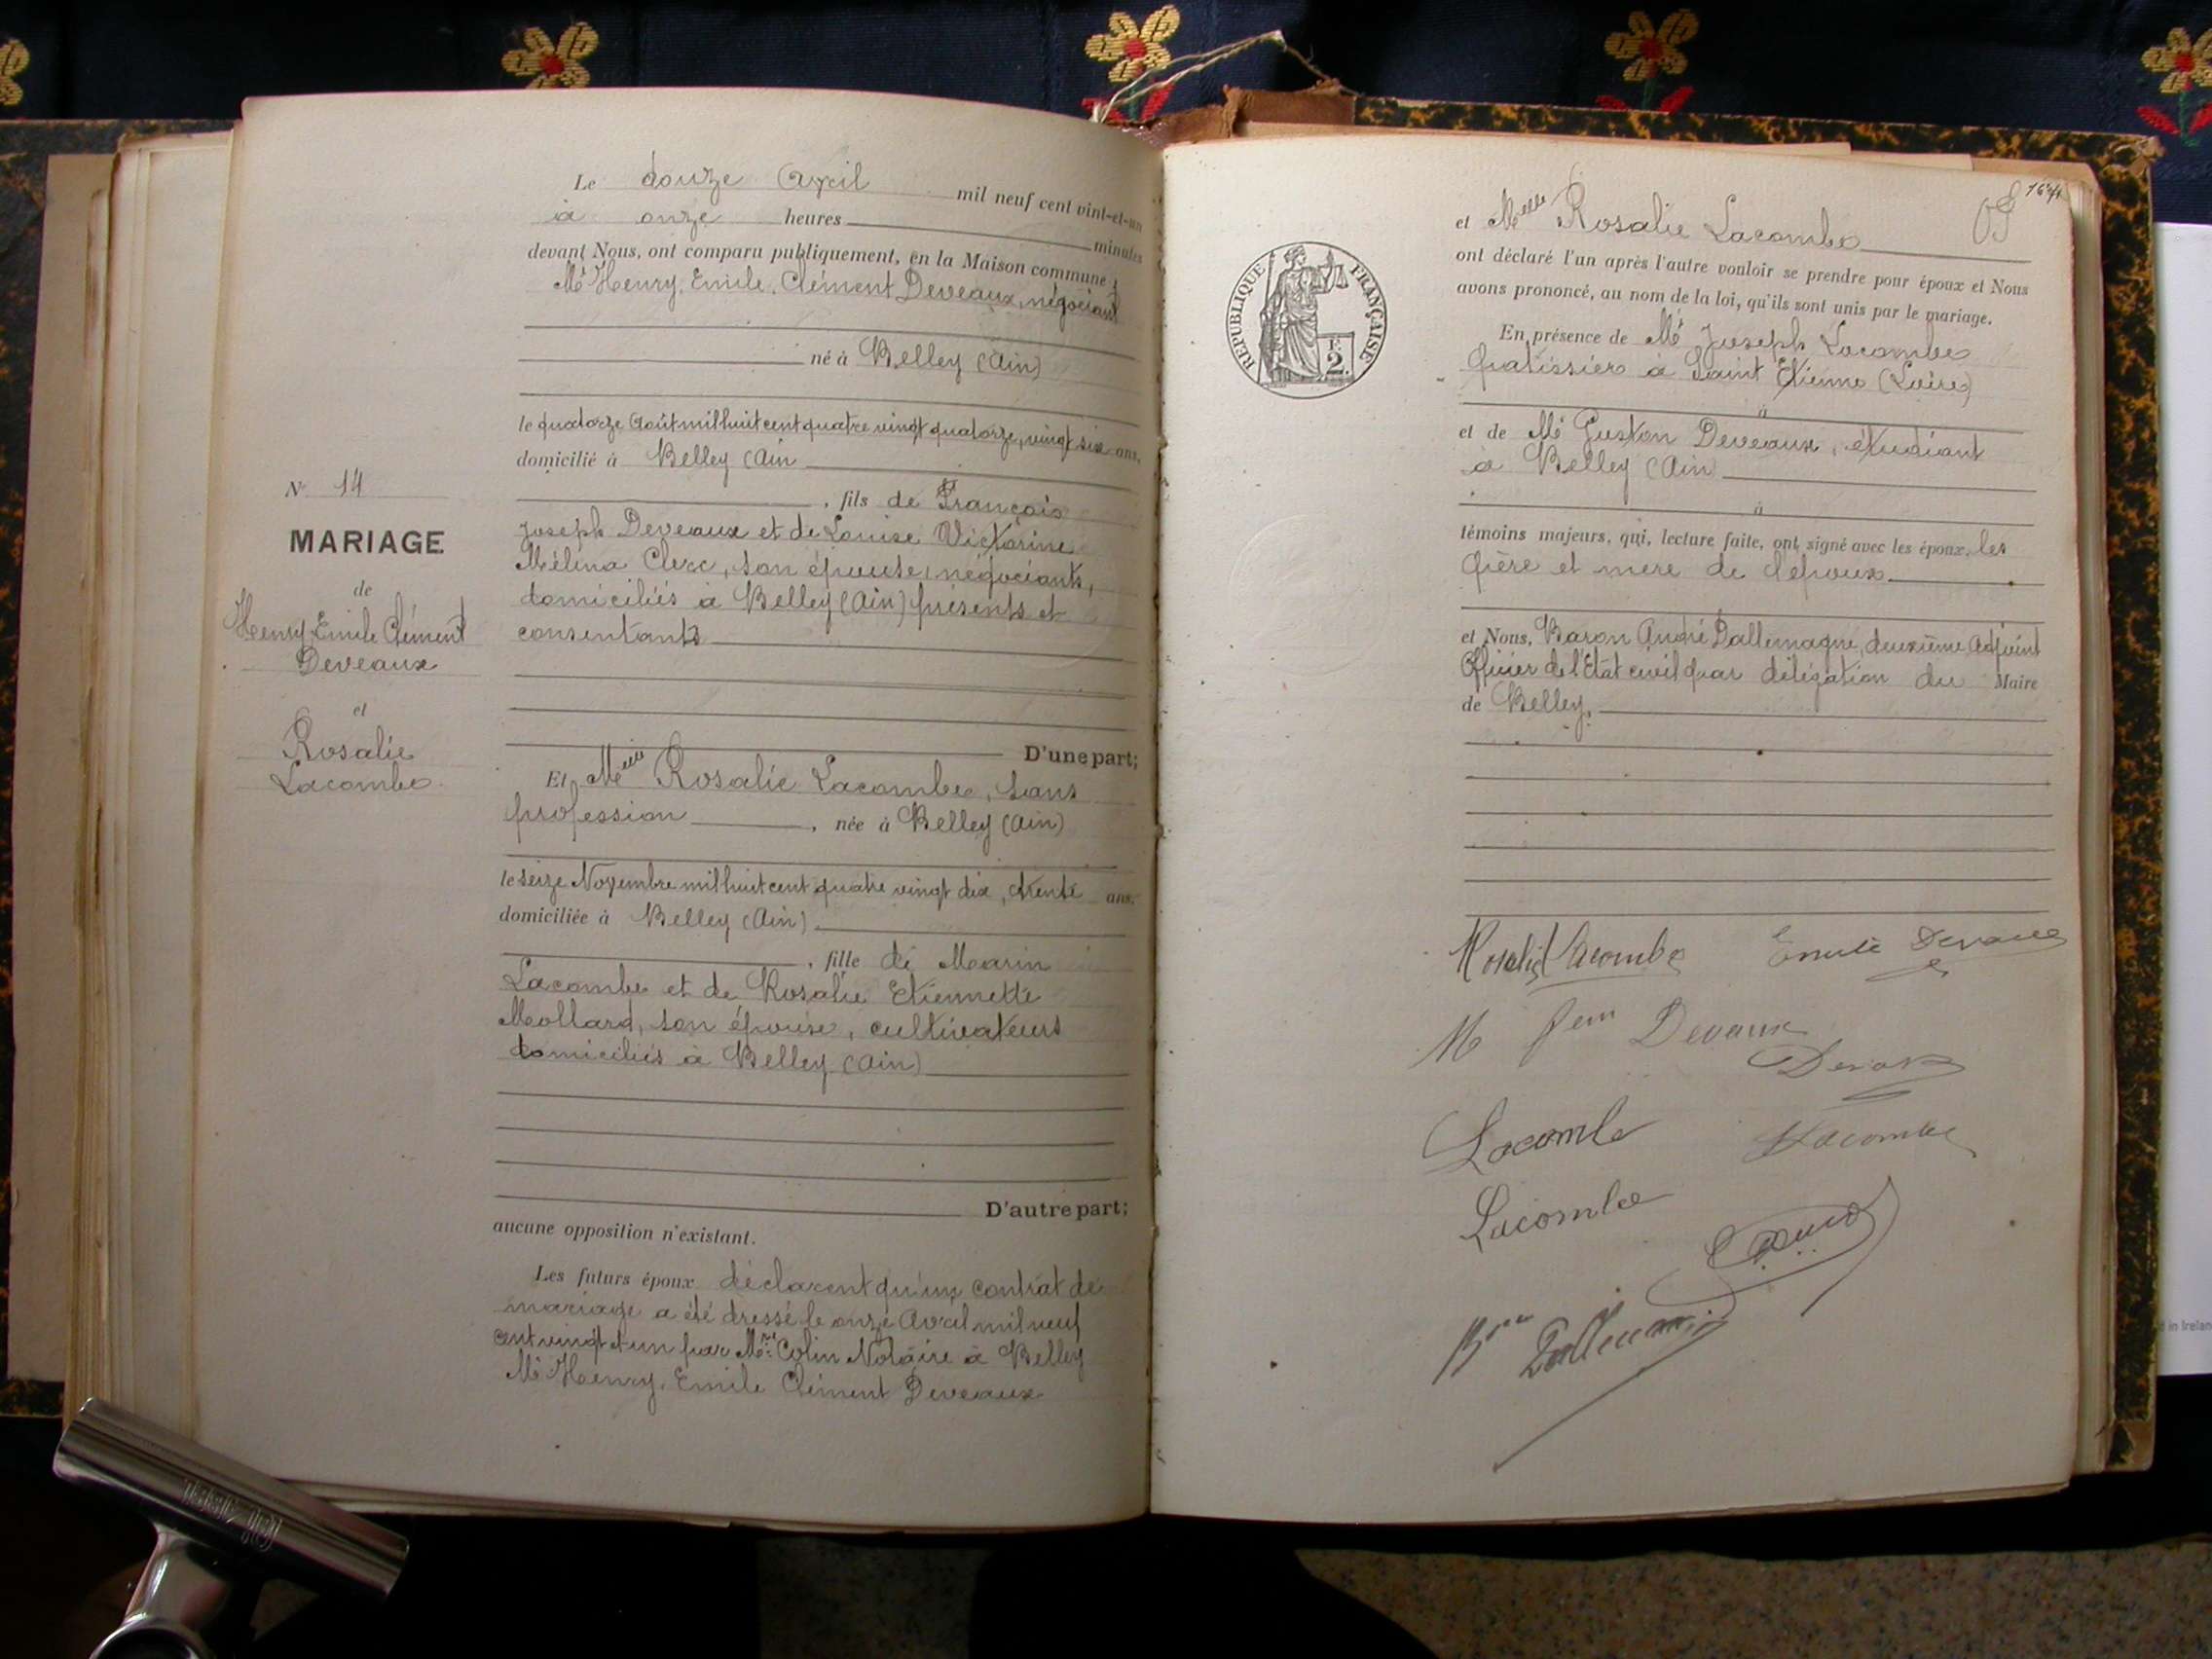 N° 14
MARIAGE
de
Henry Emile Clément
Deveaux
et
Rosalie
Lacombe
Le douze Avril mil neuf cent vint-et-un
à onze heures minutes
devant Nous, ont comparu publiquement, en la Maison commune :
Mr Henry, Emile, Clément Deveaux, négociant
né à Belley (Ain)
le quatorze Août mil huit cent quatre vingt quatorze, vingt six ans,
domicilié à Belley (Ain
, fils de François
Joseph Deveaux et de Louise Victorine
Mélina Clerc, son épouse, négociants,
domiciliés à Belley (Ain) présents et
consentants
D'une part;
Et Melle Rosalie Lacombe, sans
profession, née à Belley (Ain)
le seize Novembre mil huit cent quatre vingt dix, trente ans,
domiciliée à Belley (Ain)
, fille de Marin
Lacombe et de Rosalie Etiennette
Mollard, son épouse, cultivateurs
domiciliés à Belley (Ain)
D'autre part;
aucune opposition n'existant.
Les futurs époux déclarent qu'un contrat de
mariage a été dressé le onze Avril mil neuf
cent vingt et un par Me Colin Notaire à Belley
Mr Henry, Emile Clément Deveaux
RÉPUBLIQUE FRANÇAISE
2
et Melle Rosalie Lacombe
ont déclaré l'un après l'autre vouloir se prendre pour époux et Nous
avons prononcé, au nom de la loi, qu'ils sont unis par le mariage.
En présence de Mr Joseph Lacombe
patissier à Saint Etienne (Loire)
à
et de Mr Guston Deveaux, étudiant
à Belley (Ain)
à
témoins majeurs, qui, lecture faite, ont signé avec les époux, les
père et mère de l'époux
et Nous, Baron André Dallemagne, deuxième Adjoint
Officier de l'Etat civil par délégation du Maire
de Belley.
Rosalie Lacombe
Emile Deveaux
M Deveaux
Lacombe
Lacombe
Lacombe
Bon Dallemagne